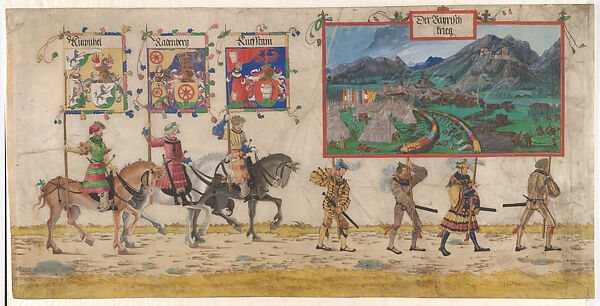 Kitzpühel
Ratenberg
Kuefstain
Der Bayrisch
krieg